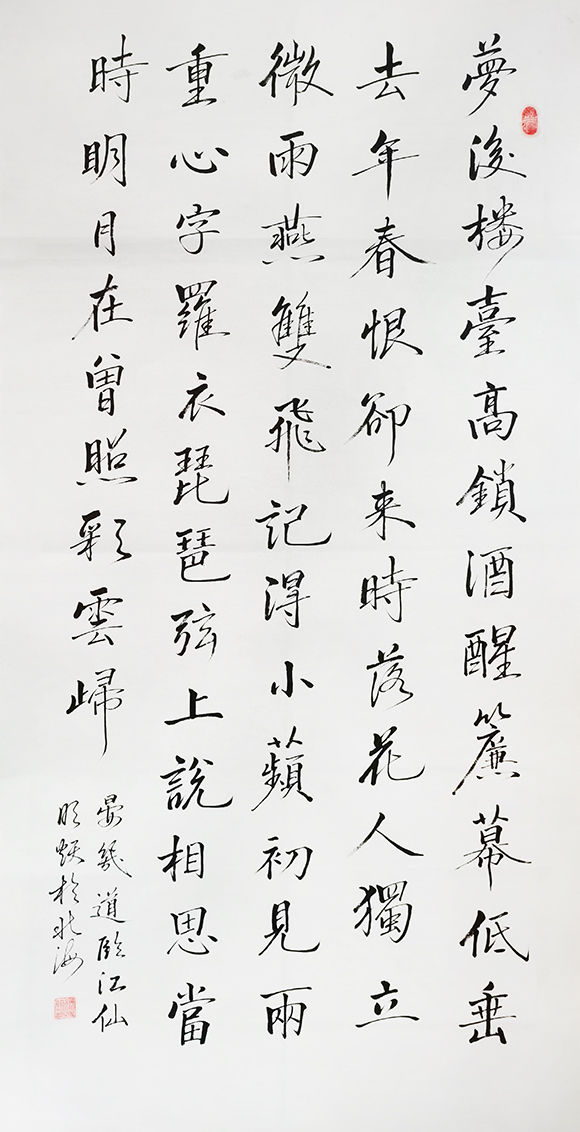 夢後樓臺高鎖酒醒簾幕低垂
去年春恨卻来時落花人獨立
微雨燕雙飛記得小蘋初見兩
重心字羅衣琵琶弦上說相思當
時明月在曾照彩雲歸
晏幾道臨江仙
於北海